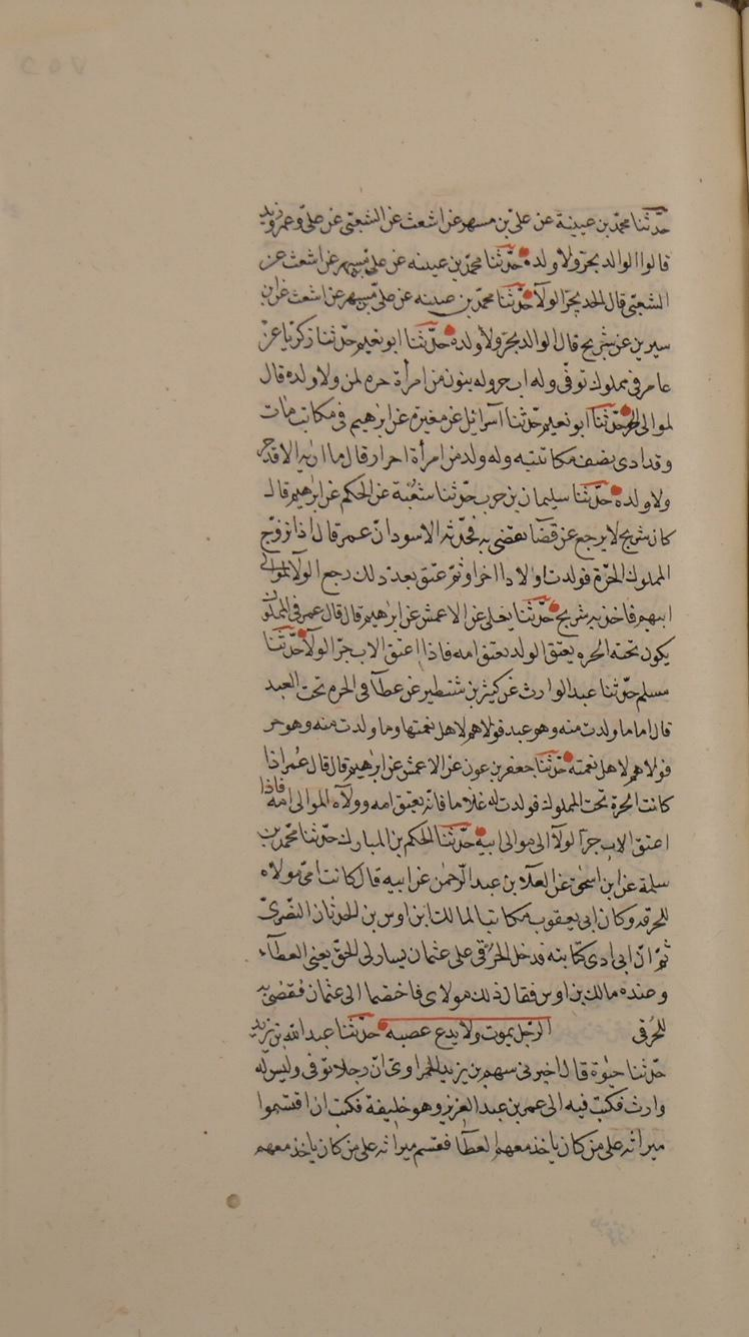 حدثنا محمد بن عيينة عن علي بن مسهر عن اشعث عن الشعبي عن علي وعمر وزيد
قالوا الوالد يجر ولاء ولده حدثنا محمد بن عيينه عن علي بن مسهر عن اشعث عن
الشعبي قال الجد يجر الولاء حدثنا محمد بن عيينه عن علي بن مسهر عن اشعث عن ابن
سيرين عن شريح قال الوالد يجر ولاء ولده حدثنا ابو نعيم حدثنا زكريا عن
عامر في مملوك توفي وله اب حر وله بنون من امرأة حره لمن ولاء ولده قال
لموالي الجد حدثنا ابو نعيم حدثنا اسرائيل عن مغيرة عن ابرهيم في مكاتب مات
وقد ادى نصف مكاتبته وله ولد من امرأة احرار قال ما اراه الا قد جر
ولاء ولده حدثنا سليمان بن حرب حدثنا شعبة عن الحكم عن ابرهيم قال
كان شريح لا يرجع عن قضاء يقضي به فحدثه الاسود ان عمر قال اذا تزوج
المملوك الحرة فولدت اولادا احرارا ثم عتق بعد ذلك رجع الولاء لموالي
ابيهم فاخذ به شريح حدثنا يعلى عن الاعمش عن ابرهيم قال قال عمر في المملوك
يكون تحته الحره يعتق الولد بعتق امه فاذا اعتق الاب جر الولاء حدثنا
مسلم حدثنا عبد الوارث عن كثير بن شنطير عن عطاء في الحره تحت العبد
قال اما ما ولدت منه وهو عبد فولاؤهم لاهل نعمتها وما ولدت منه وهو حر
فولاؤهم لاهل نعمته حدثنا جعفر بن عون عن الاعمش عن ابرهيم قال قال عمر اذا
كانت الحرة تحت المملوك فولدت له غلاما فانه يعتق امه وولآه لموالي امه فاذا
اعتق الاب جر الولاء الى موالي ابيه حدثنا الحكم بن المبارك حدثنا محمد بن
سلمة عن ابن اسحق عن العلاء بن عبد الرحمن عن ابيه قال كانت امي مولاه
للحرقه وكان ابي يعقوب مكاتبا لمالك ابن اوس بن الحدثان النضري
ثم ان ابي ادى كتابته فدخل الحرقي على عثمان يسار لي الحق يعني العطاء
وعنده مالك بن اوس فقال ذلك مولاي فاختصما الى عثمان فقضى به
للحرقي الرجل يموت ولا يدع عصبه حدثنا عبد الله بن يزيد
حدثنا حيوة قال اخبرني سهم بن يزيد الحمراوي ان رجلا توفي وليس له
وارث فكتب فيه الى عمر بن عبد العزيز وهو خليفة فكتب ان اقتسموا
ميراثه على من كان ياخذ معهم العطاء فقسم ميراثه على من كان ياخذ معهم